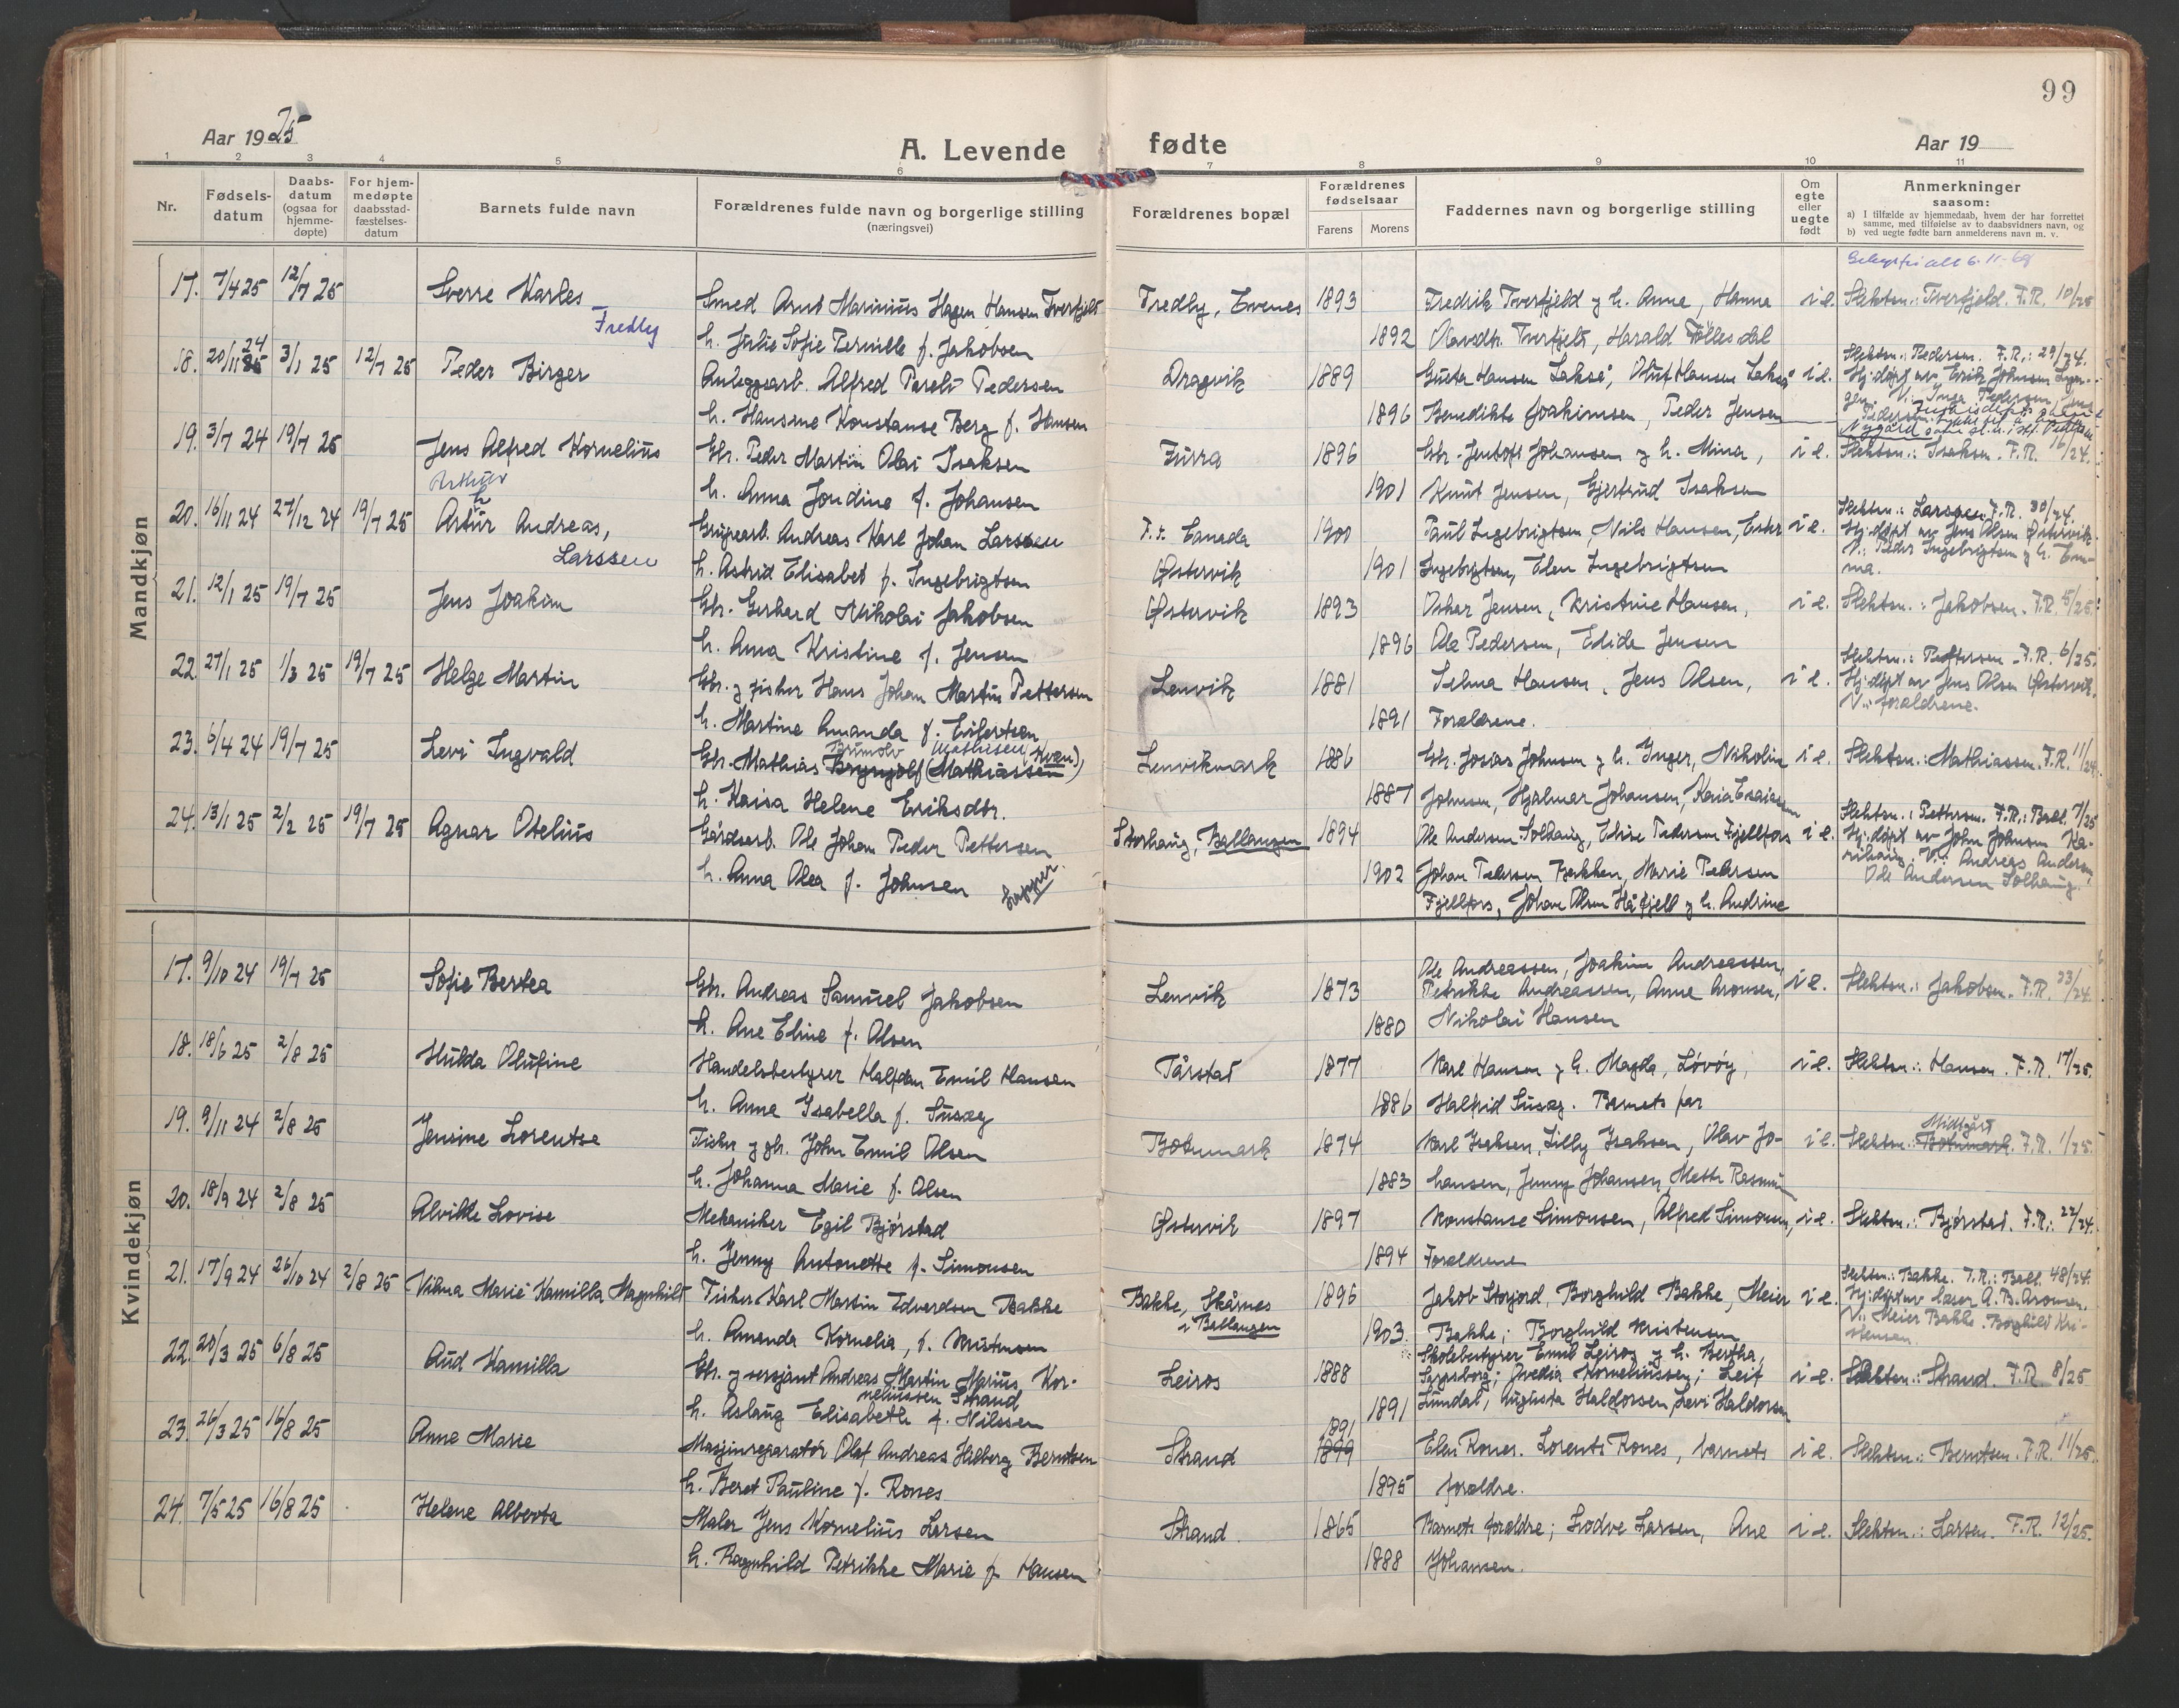 99
Aar 1925
A. Levende fødte
Aar 19
1 2 3 4 5 6 7 8 9 10 11
Nr.
Fødsels-
datum
Daabs-
datum
(ogsaa for
hjemme-
døpte)
For hjem-
medøpte
daabsstad-
fæstelses-
datum
Barnets fulde navn
Forældrenes fulde navn og borgerlige stilling
(næringsvei)
Forældrenes bopæl
Forældrenes
fødselsaar
Farens Morens
Faddernes navn og borgerlige stilling
Om
egte
eller
uegte
født
Anmerkninger
saasom:
a) I tilfælde av hjemmedaab, hvem der har forrettet
samme, med tilføielse av to daabsvidners navn, og
b) ved uegte fødte barn anmelderens navn m. v.
Mandkjøn
17. 7/4 25 12/7 25 Sverre Karles Smed Arnt Marinius Hagen Hansen Tverfjeld Fredby, Evenes 1893 Fredrik Tverfjeld og h. Anne, Hanna i e. Slektsn.: Tverfjeld. F.R. 10/25
Fredly
h. Julie Sofie Pernille f. Jakobsen 1892 Olavsdtr. Tverfjeld, Harald Tollesdal
18. 20/11 24 3/1 25 12/7 25 Peder Birger Anleggsarb. Alfred Parelo Pedersen Dragvik 1889 Gustav Hansen Lakså, Oluf Hansen Lakså i e. Slektsn.: Pedersen. F.R.: 29/24.
Hj.døpt av Erik Johnsen
h. Hansine Konstanse Berg f. Hansen 1896 Benedikte Joakimsen, Peder Jensen
19. 3/7 24 19/7 25 Jens Alfred Kornelius Gbr. Peder Martin Olai Isaksen Furra 1896 Gbr. Jentoft Johansen og h. Mina, i e. Slektsn.: Isaksen. F.R. 16/24.
h. Anna Jondine f. Johansen 1901 Knut Jensen, Gjertrud Isaksen
Arthur
20. 16/11 24 27/12 24 19/7 25 Artur Andreas, Grugearb. Andreas Karl Johan Larssen F.t. Canada 1900 Paul Ingebrigtsen, Nils Hansen, Ester i e. Slektsn.: Larssen F.R. 30/24.
Hj.døpt av Jens Olsen Østervik.
V.: Peder Ingebrigtsen og h. Em-
ma.
Larssen h. Astrid Elisabet f. Ingebrigtsen Østervik 1901 Ingebrigtsen, Elen Ingebrigtsen
21. 12/1 25 19/7 25 Jens Joakim Gbr. Gerhard Nikolai Jakobsen Østervik 1893 Oskar Jensen, Kristine Hansen, i e. Slektsn.: Jakobsen. F.R. 5/25.
h. Anna Kristine f. Jensen 1896 Ole Pedersen, Edide Jensen
22. 27/1 25 1/3 25 19/7 25 Helge Martin Gbr. og fisker Hans Johan Martin Pettersen Lenvik 1881 Selma Hansen, Jens Olsen, i e. Slektsn.: Pettersen. F.R. 6/25.
Hj.døpt av Jens Olsen Østervik.
V.: foreldrene.
h. Martine Amanda f. Eilertsen 1891 Foreldrene.
23. 6/4 24 19/7 25 Levi Ingvald Gbr. Mathias Brynjolf (Mathiassen) Lenvikmark 1886 Gbr. Josias Johnsen og h. Inger, Nikolin i e. Slektsn.: Mathiassen. F.R. 11/24.
Brunolv Mathisen (Kven)
h. Kaisa Helene Eriksdtr. 1887 Johnsen, Hjalmar Johansen, Karin Esaiassen
24. 13/1 25 2/2 25 19/7 25 Agnar Otelius Gårdsarb. Ole Johan Peder Pettersen Storhaug, Ballangen 1894 Ole Andersen Solhaug, Elise Pedersen Fjellfors i e. Slektsn.: Pettersen. F.R.: Ball. 7/25
Hj.døpt av John Johnsen Ka-
rihaug. V.: Andreas Andersen,
Ole Andersen Solhaug.
h. Anna Olea f. Johnsen lapper. 1902 Johan Pedersen Bakken, Marie Pedersen
Fjellfors, Johan Olsen Håfjell og h. Andrine
Kvindekjøn
17. 9/10 24 19/7 25 Sofie Bertea Gbr. Andreas Samuel Jakobsen Lenvik 1873 Ole Andreassen, Joakim Andreassen, i e. Slektsn.: Jakobsen. F.R. 23/24.
Petrikke Andreassen, Anne Aronsen,
h. Ane Eline f. Olsen 1880 Nikolai Hansen
18. 18/6 25 2/8 25 Hulda Olufine Handelsbestyrer Halfdan Emil Hansen Tårstad 1877 Karl Hansen og h. Magda, Løvøy, i e. Slektsn.: Hansen. F.R. 17/25.
h. Anna Isabella f. Susæg 1886 Halfrid Susæg. Barnets far
19. 9/11 24 2/8 25 Jensine Lorentse Fisker og gbr. John Emil Olsen Botnmark 1874 Karl Isaksen, Lilly Isaksen, Olav Jo- i e. Slektsn.: Botnmark. F.R. 1/25.
Midtgård
h. Johanna Marie f. Olsen 1883 hansen, Jenny Johansen, Mette Rasmus
20. 18/9 24 2/8 25 Alvilde Lovise Mekaniker Egil Bjørstad Østervik 1897 Konstanse Simonsen, Alfred Simonsen, i e. Slektsn.: Bjørstad. F.R.: 22/24.
h. Jenny Antonette f. Simonsen 1894 Foreldrene
21. 17/9 24 26/10 24 2/8 25 Vilma Marie Kamilla Magnhild Fisker Karl Martin Edvardsen Bakke Bakke, Skårnes 1896 Jakob Storjord, Borghild Bakke, Meier i e. Slektsn.: Bakke. F.R.: Ball. 48/24.
Hj.døpt av lærer A. B. Aronsen.
V.: Meier Bakke. Borghild Kri-
stensen.
i Ballangen
h. Amanda Kornelia, f. Kristensen 1903. Bakke; Borghild Kristensen
22. 20/3 25 6/8 25 Aud Kamilla Gbr. og sersjant Andreas Martin Marius Kor- Leiros 1888 Skolebestyrer Emil Leiros og h. Bertha, i e. Slektsn.: Strand. F.R. 8/25
neliussen Strand Sarpsborg; Arvedia Korneliussen; Leif
h. Aslaug Elisabeth f. Nilssen 1891 Lundal, Augusta Haldorsen, Levi Haldorsen
23. 26/3 25 16/8 25 Anne Marie Masjinreparatør Olaf Andreas Hilberg Berntsen Strand 1891 1899 Elen Rones. Lorents Rones, barnets i e. Slektsn.: Berntsen. F.R. 11/25.
h. Beret Pauline f. Rones 1895 foreldre.
24. 7/5 25 16/8 25 Helene Alberta Maler Jens Kornelius Larsen Strand 1865 Barnets foreldre; Lodve Larsen, Ane i e. Slektsn.: Larsen. F.R. 12/25.
h. Ragnhild Petrikke Marie f. Hansen 1888 Johansen.